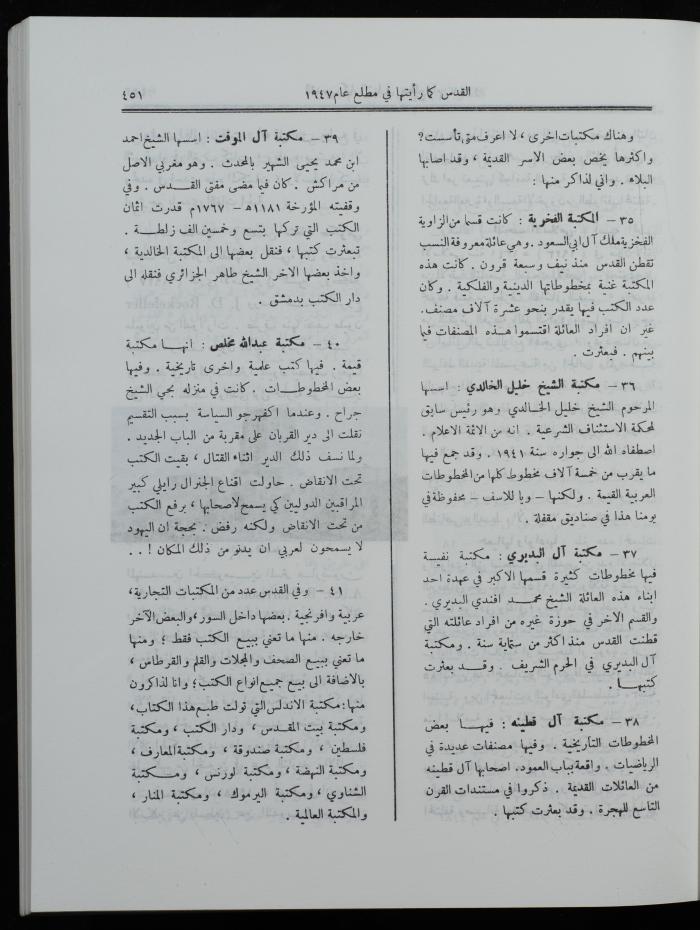 القدس كما رأيتها في مطلع عام ١٩٤٧
٤٥١
وهناك مكتبات اخرى ، لا اعرف متى تأسست؟
واكثرها يخص بعض الأسر القديمة ، وقد اصابها
البلاء . واني لذاكر منها :
٣٥ – المكتبة الفخرية : كانت قسما من الزاوية
الفخرية ملك آل ابي السعود . وهي عائلة معروفة النسب
تقطن القدس منذ نيف وسبعة قرون . كانت هذه
المكتبة غنية بمخطوطاتها الدينية والفلكية . وكان
عدد الكتب فيها يقدر بنحو عشرة آلاف مصنف .
غير ان افراد العائلة اقتسموا هذه المصنفات فيما
بينهم . فبعثرت .
٣٦ – مكتبة الشيخ خليل الخالدي : اسسها
المرحوم الشيخ خليل الخالدي وهو رئيس سابق
لمحكة الاستئناف الشرعية . انه من الائمة الاعلام .
اصطفاه الله الى جواره سنة ١٩٤١ . وقد جمع فيها
ما يقرب من خمسة آلاف مخطوط كلها من المخطوطات
العربية القيمة . ولكنها – ويا للاسف – محفوظة في
يومنا هذا في صناديق مقفلة .
٣٧ – مكتبة آل البديري : مكتبة نفيسة
فيها مخطوطات كثيرة قسمها الاكبر في عهدة احد
ابناء هذه العائلة الشيخ محمد افندي البديري .
والقسم الآخر في حوزة غيره من افراد عائلته التي
قطنت القدس منذ اكثر من ستماية سنة . ومكتبة
آل البديري في الحرم الشريف . وقد بعثرت
كتبها .
٣٨ – مكتبة آل قطينه : فيها بعض
المخطوطات التأريخية . وفيها مصنفات عديدة في
الرياضيات . واقعة بباب العمود. اصحابها آل قطينه
من العائلات القديمة . ذكروا في مستندات القرن
التاسع للهجرة . وقد بعثرت كتبها .
٣٩ – مكتبة آل الموقت : اسسها الشيخ احمد
ابن محمد يحيى الشهير بالمحدث . وهو مغربي الاصل
من مراكش . كان فيما مضى مفتي القدس . وفي
وقفيته المؤرخة ١١٨١ه – ١٧٦٧م قدرت اثمان
الكتب التي تركها بتسع وخمسين الف زلطة .
تبعثرت كتبها ، فنقل بعضها الى المكتبة الخالدية ،
واخذ بعضها الاخر الشيخ طاهر الجزائري فنقله الى
دار الكتب بدمشق .
٤٠ – مكتبة عبدالله مخلص : انها مكتبة
قيمة . فيها كتب علمية واخرى تاريخية . وفيها
بعض المخطوطات . كانت في منزله بحي الشيخ
جراح . وعندما اكفهر جو السياسة بسبب التقسيم
نقلت الى دير القربان على مقربة من الباب الجديد .
ولما نسف ذلك الدير اثناء القتال ، بقيت الكتب
تحت الانقاض . حاولت اقناع الجنرال رايلي كبير
المراقبين الدوليين كي يسمح لاصحابها ، برفع الكتب
من تحت الانقاض ولكنه رفض . بحجة ان اليهود
لا يسمحون لعربي ان يدنو من ذلك المكان ! . .
٤١ – وفي القدس عدد من المكتبات التجارية ،
عربية وافرنجية . بعضها داخل السور ، والبعض الآخر
خارجه . منها ما تعني ببيع الكتب فقط ؛ ومنها
ما تعني ببيع الصحف والمجلات والقلم والقرطاس ،
بالاضافة الى بيع جميع انواع الكتب ؛ وانا لذاكرون
منها : مكتبة الاندلس التي تولت طبع هذا الكتاب ،
ومكتبة بيت المقدس ، ودار الكتب ، ومكتبة
فلسطين ، ومكتبة صندوقة ، ومكتبة المعارف ،
ومكتبة النهضة ، ومكتبة لورنس ، ومكتبة
الشناوي ، ومكتبة اليرموك ، ومكتبة المنار ،
والمكتبة العالمية .